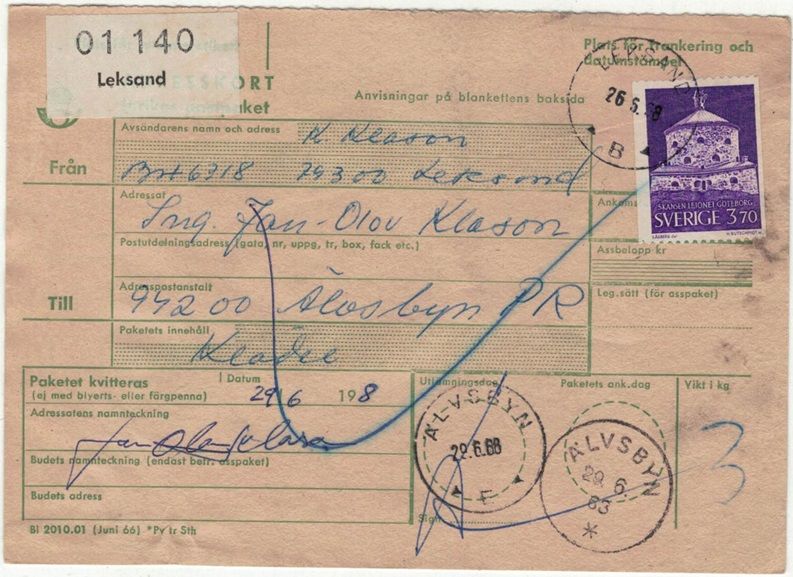 01 140
Leksand
ESSKORT
Inrikes postpaket
Plats för frankering och
datumstämpel
Anvisningar på blankettens baksida
LEKSAND
26 6.68
B
SKANSEN LEJONET GÖTEBORG
SVERIGE 370
Från
Avsändarens namn och adress
K Klason
Box 6718 79300 Leksand
Adressat
Ing. Jan-Olov Klason
Postutdelningsadress (gata, nr, uppg, tr, box, fack etc.)
Ankoms
Assbelopp kr
Till
Adresspostanstalt
94200 Älvsbyn PR
Leg.sätt (för asspaket)
Paketets innehåll
Kläder
Paketet kvitteras
(ej med blyerts- eller färgpenna)
Datum
29/6 1968
Utlämningsdag
Paketets ank.dag
Vikt i kg
3
Adressatens namnteckning
ÄLVSBYN
29.6.68
F
ÄLVSBYN
29. 6.
63
*
Budets namnteckning (endast betr. asspaket)
Budets adress
Sign
Bl 2010.01 (Juni 66) *Pv tr Sth